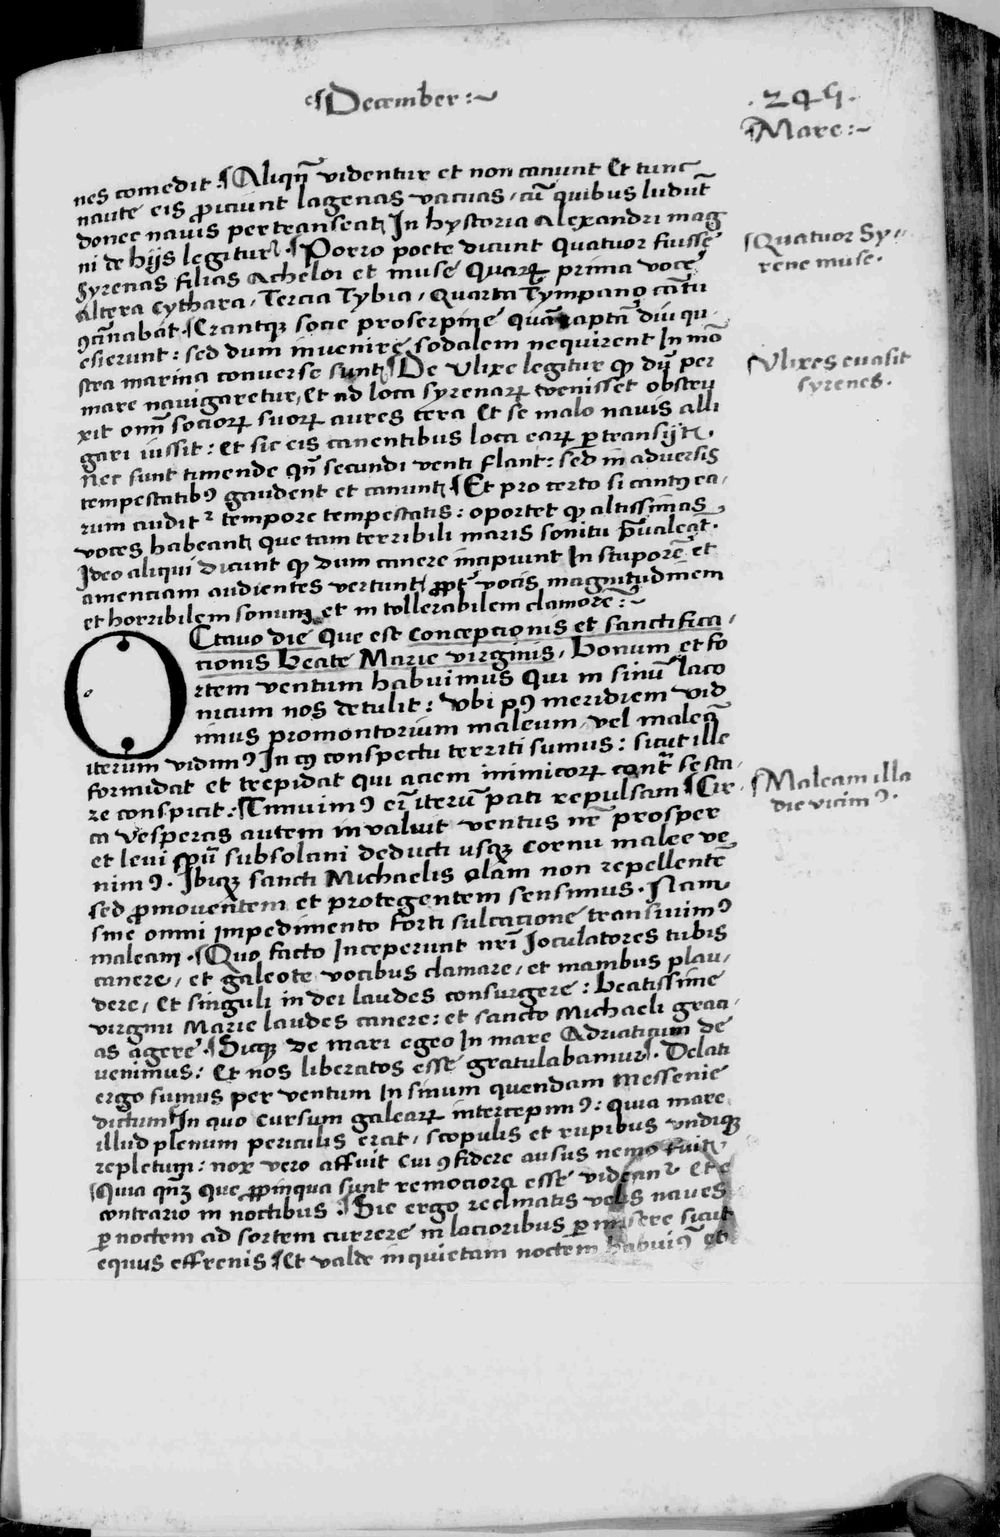 ¶December:~
.245.
¶Mare:~
nes comedit. ¶Aliqñ videntur et non canunt Et tunc
naute eis ꝓiciunt lagenas vacuas, cũ quibus ludũt
donec navis pertranseat¶ In hystoria Alexandri mag
ni de hijs legitur. ¶Porro poete dicunt Quatuor fuisse
Syrenas filias Acheloi et muse Quaꝝ prima voce
Altera Cythara, Tercia Tybia, Quarta Tympano cãtu
ꝯcĩnabãt. ¶Erantqꝫ socie proserpine Quã raptã diu qu,
esierunt: sed dum invenire sodalem nequirent In mõ
stra marina converse sunt¶ ¶De Ulixe legitur ꝙ dũ per
mare navigaretur, Et ad loca syrenaꝝ venisset obstru
xit omñ socioꝝ suoꝝ aures cera Et se malo navis alli
gari iussit: et sic eis canentibus loca eaꝝ ꝑtransijt¶.
Nec sunt timende qñ secundi venti flant: sed in adversis
tempestatibꝰ gaudent et canunt¶ ¶Et pro certo si cantꝰ ea,
rum audit² tempore tempestatis: oportet ꝙ altissimas
voces habeant¶ que tam terribili maris sonitu p̃valeat.
Ideo aliqui dicunt ꝙ dum canere incipiunt In stuporẽ et
amenciam audientes vertunt¶ ꝓpt² vocis magnitudinem
et horribilem sonum et in tollerabilem clamorẽ:~
OCtavo die Que est Concepcionis et sanctifica,
tionis Beate Marie virginis, Bonum et fo
rtem ventum habuimus Qui in sinũ laco
nicum nos detulit: Vbi pꝰ meridiem vid
imus promontorium maleum, vel maleã
iterum vidimꝰ In cꝰ conspectu territi sumus: sicut ille
formidat et trepidat qui aciem inimicoꝝ contr̃ se sta,
re conspicit: ¶Timuimꝰ eĩ iterũ pati repulsam ¶Cir,
ca vesperas autem invaluit ventus nr̃ prosper
et levi spũ subsolani deducti usqꝫ cornu malee ve
nimꝰ. Ibiqꝫ sancti Michaelis alam non repellentẽ
sed ꝓmoventem et protegentem sensimus. Nam
sine omni impedimento forti sulcatione transivimꝰ
maleam. ¶Quo facto Inceperunt nr̃i Ioculatores tubis
canere, et galeote vocibus clamare, et manibus plau,
dere, Et singuli in dei laudes consurgere: Beatissime
virgini Marie laudes canere: et sancto Michaeli graci,
as agere. ¶Sicqꝫ de mari egeo In mare Adriaticum de
venimus: Et nos liberatos esse gratulabamur¶. Delati
ergo sumus per ventum In sinum quendam Messenie
dictum¶ In quo cursum galeaꝝ intercepimꝰ: quia mare
illud plenum periculis erat, scopulis et rupibus undiqꝫ
repletum: nox vero affuit Cui ꝯfidere ausus nemo fuit¶
¶Quia qñqꝫ que ꝓpinqua sunt remociora esse videant² Et e
contrario in noctibus: ¶Sic ergo reclinatis velis naves
ꝑ noctem ad sortem currere in lacioribus ꝑmisere sicut
equus effrenis ¶Et valde inquietam noctem habuimꝰ et
¶Quatuor Sy,,
rene muse.
¶Vlixes evasit
syrenes.
¶Maleam illa
die vicimꝰ.